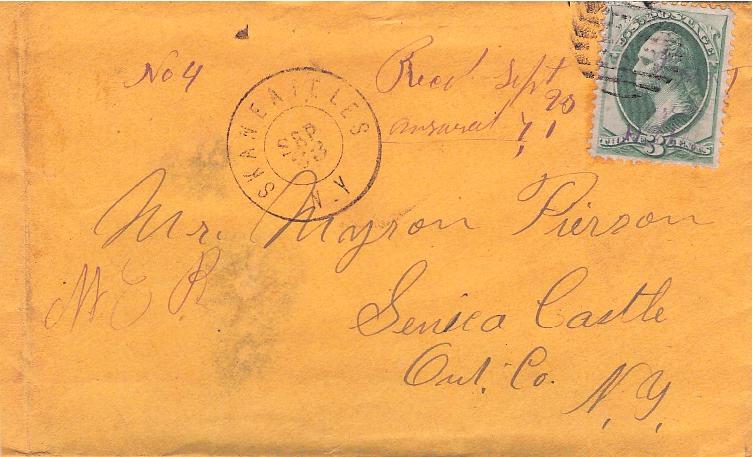 No 4
Recd Sept
20
SKANEATELES
SEP
N.Y
U.S. POSTAGE
THREE 3 CENTS
Mr. Myron Pierson
Seneca Castle
Ont. Co.
N.Y.